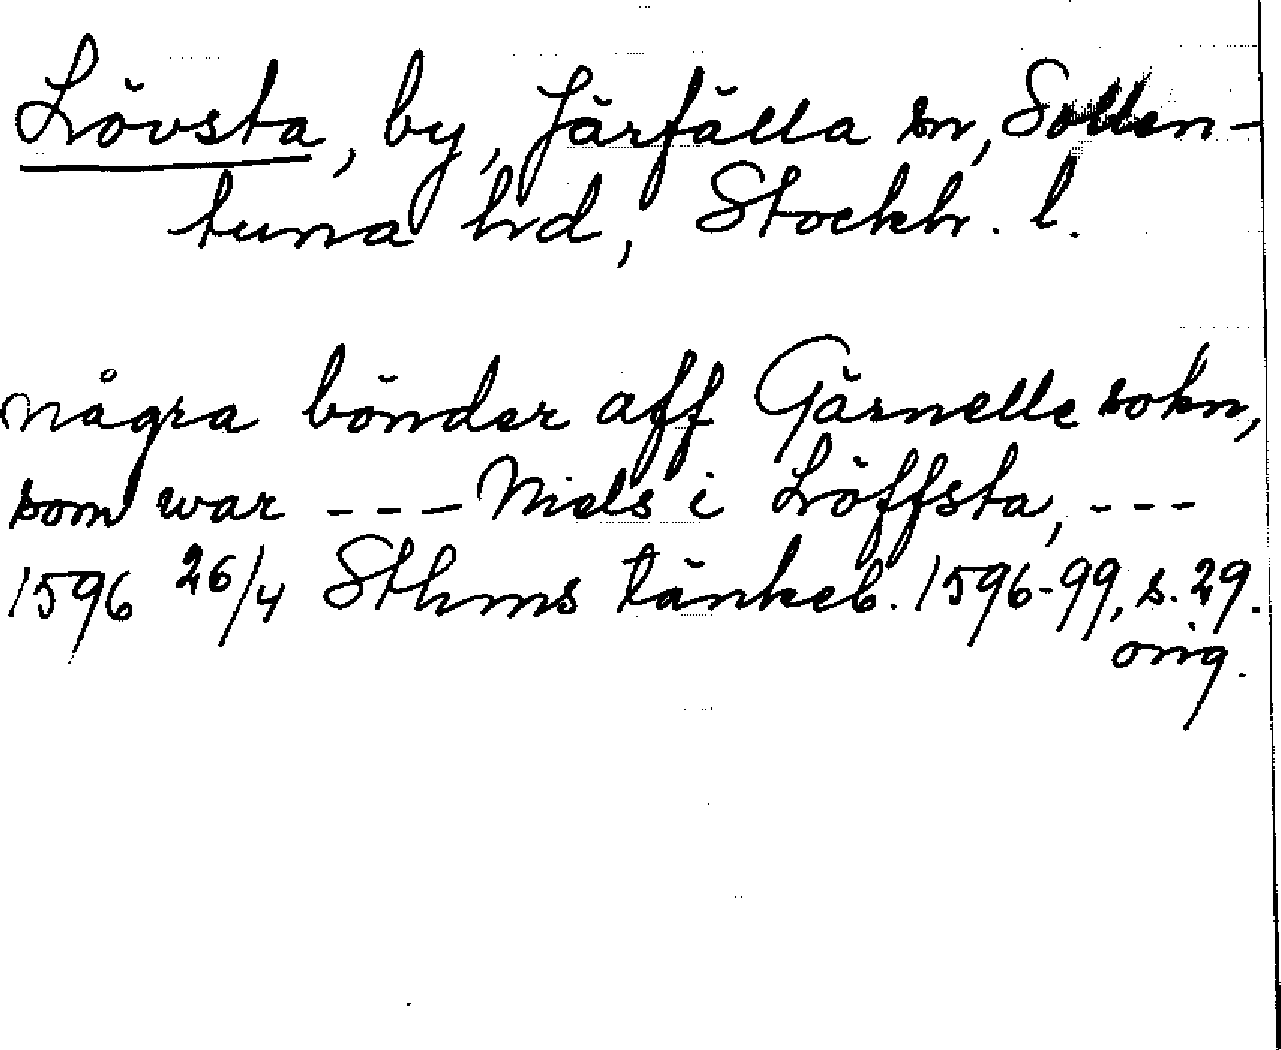 Lövsta, by, Järfälla sn, Sollen-
tuna hd, Stockh. l.
några bönder aff Gärnelle sokn,
som war --- Niels i Löffsta, ---
1596 26/4 Sthms tänkeb. 1596-99, s. 29.
orig.